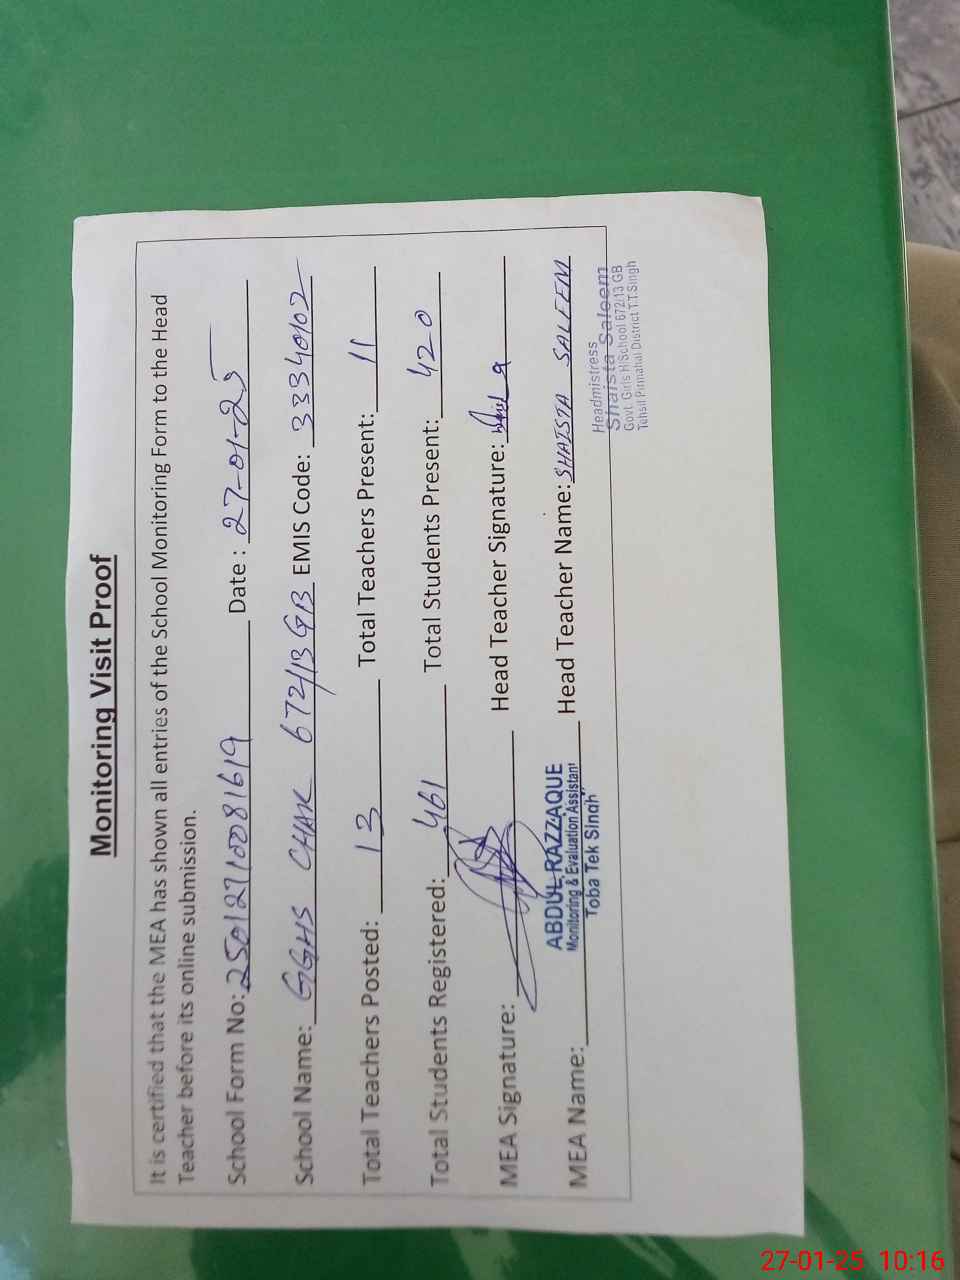 Monitoring Visit Proof
It is certified that the MEA has shown all entries of the School Monitoring Form to the Head
Teacher before its online submission.
School Form No: 25012710081619 Date : 27-01-25
School Name: GGHS CHAK 672/13 GB EMIS Code: 33340102
Total Teachers Posted: 13 Total Teachers Present: 11
Total Students Registered: 461 Total Students Present: 420
MEA Signature: Head Teacher Signature:
MEA Name: Head Teacher Name: SHAISTA SALEEM
ABDUL RAZZAQUE
Monitoring & Evaluation Assistant
Toba Tek Singh
Headmistress
Shaista Saleem
Govt. Girls H/School 672/13 GB
Tehsil Pirmahal District T.T.Singh
27-01-25 10:16